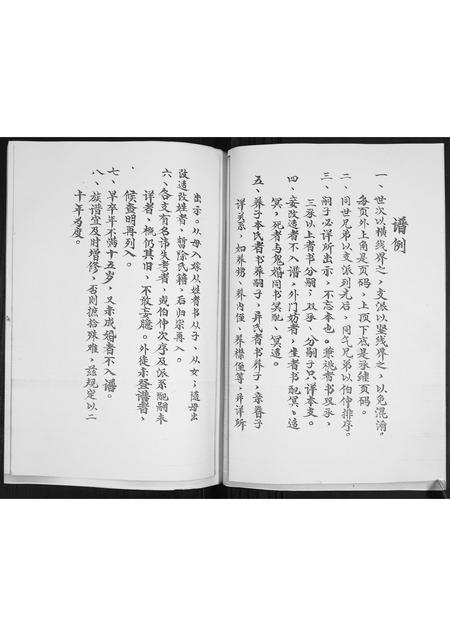 谱例
一、世次以横线界之，支派以竖线界之，以免混淆。
每页外上角是页码，上顶下底是承续页码。
二、同世兄弟以支派列先后，同气兄弟以伯仲排序。
三、嗣子必详所出示，不忘本也。兼祧者书双承，
三承以上者书分嗣；双承、分嗣子只详本支。
四、妾改造者不入谱，外门幼者，生者书配冥、适
冥，死者与鬼婚同书冥配、冥适。
五、养子本氏者书养嗣子，异氏者书养子，亲眷子
详关系，如养甥、养内侄、养襟侄等，并详所
出示。从母入嫁从姓者书从子、从女；随母出
改适改姓者，暂除氏籍，后归宗再入。
六、各支有名讳失考者，或伯仲次序及派系配嗣未
详者，概仍其旧，不敢妄臆。外徙未登谱者，
候查明再列入。
七、早卒年不满十五岁，又未成婚者不入谱。
八、族谱宜及时增修，否则摭拾殊难，兹规定以二
十年为度。